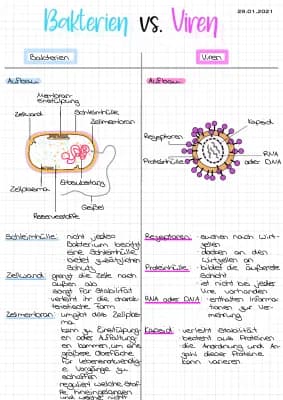 29.01.2021
Bakterien vs. Viren
Bakterien
Viren
Aufbau
Aufbau
Membran-
einstülpung
Zellwand
Schleimhülle
Zellmembran
Zellplasma
Erbsubstanz
Geißel
Reservestoffe
Kapsid
Rezeptoren
RNA
oder DNA
Proteinhülle
Schleimhülle: nicht jedes
Bakterium besitzt
eine Schleimhülle
bildet zusätzlichen
Schutz
Zellwand: grenzt die Zelle nach
außen ab
sorgt für Stabilität
verleiht ihr die charak-
teristische Form
Zellmembran: umgibt das Zellplas-
ma
kann zu Einstülpung-
en oder Auffaltung-
en kommen, um eine
größere Oberfläche
für lebensnotwendig-
e Vorgänge zu
schaffen
reguliert welche Stof-
fe hineingelangen
und welche nicht
Rezeptoren: suchen nach Wirt-
zellen
docken an den
Wirtzellen an
Proteinhülle: bildet die äußerste
Schicht
ist nicht bei jedem
Virus vorhanden
RNA oder DNA: enthalten Informa-
tionen zur Ver-
mehrung
Kapsid: verleiht Stabilität
besteht aus Proteinen
die Anordnung und An-
zahl dieser Proteine
kann variieren